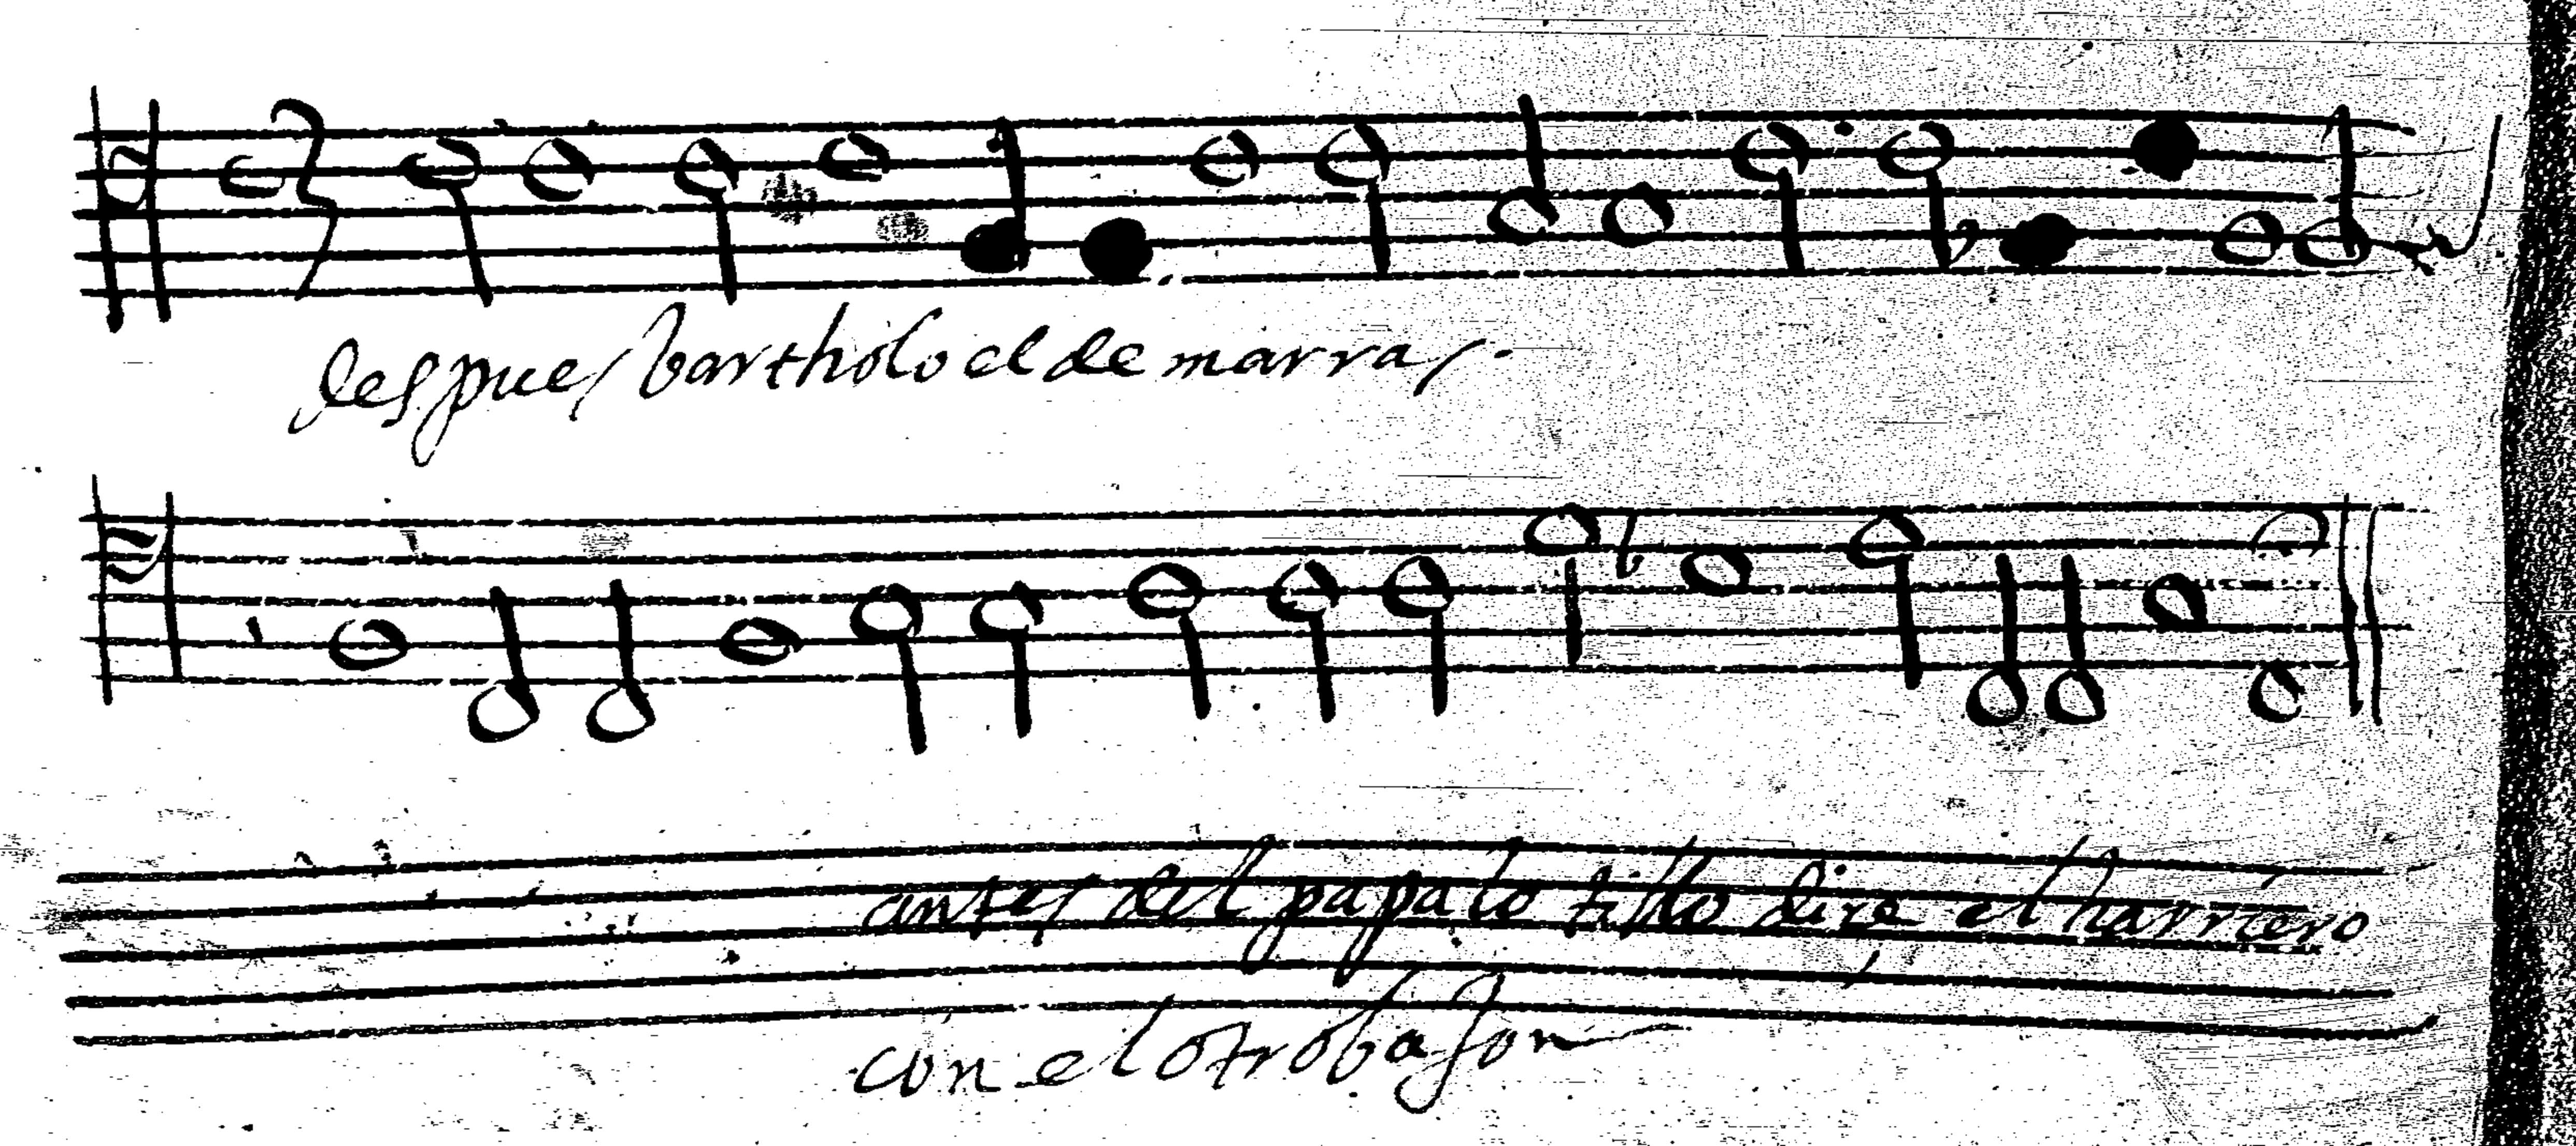 despues bartholo el de marras.
antes del papalotillo dire el harriero
con el otro bajon